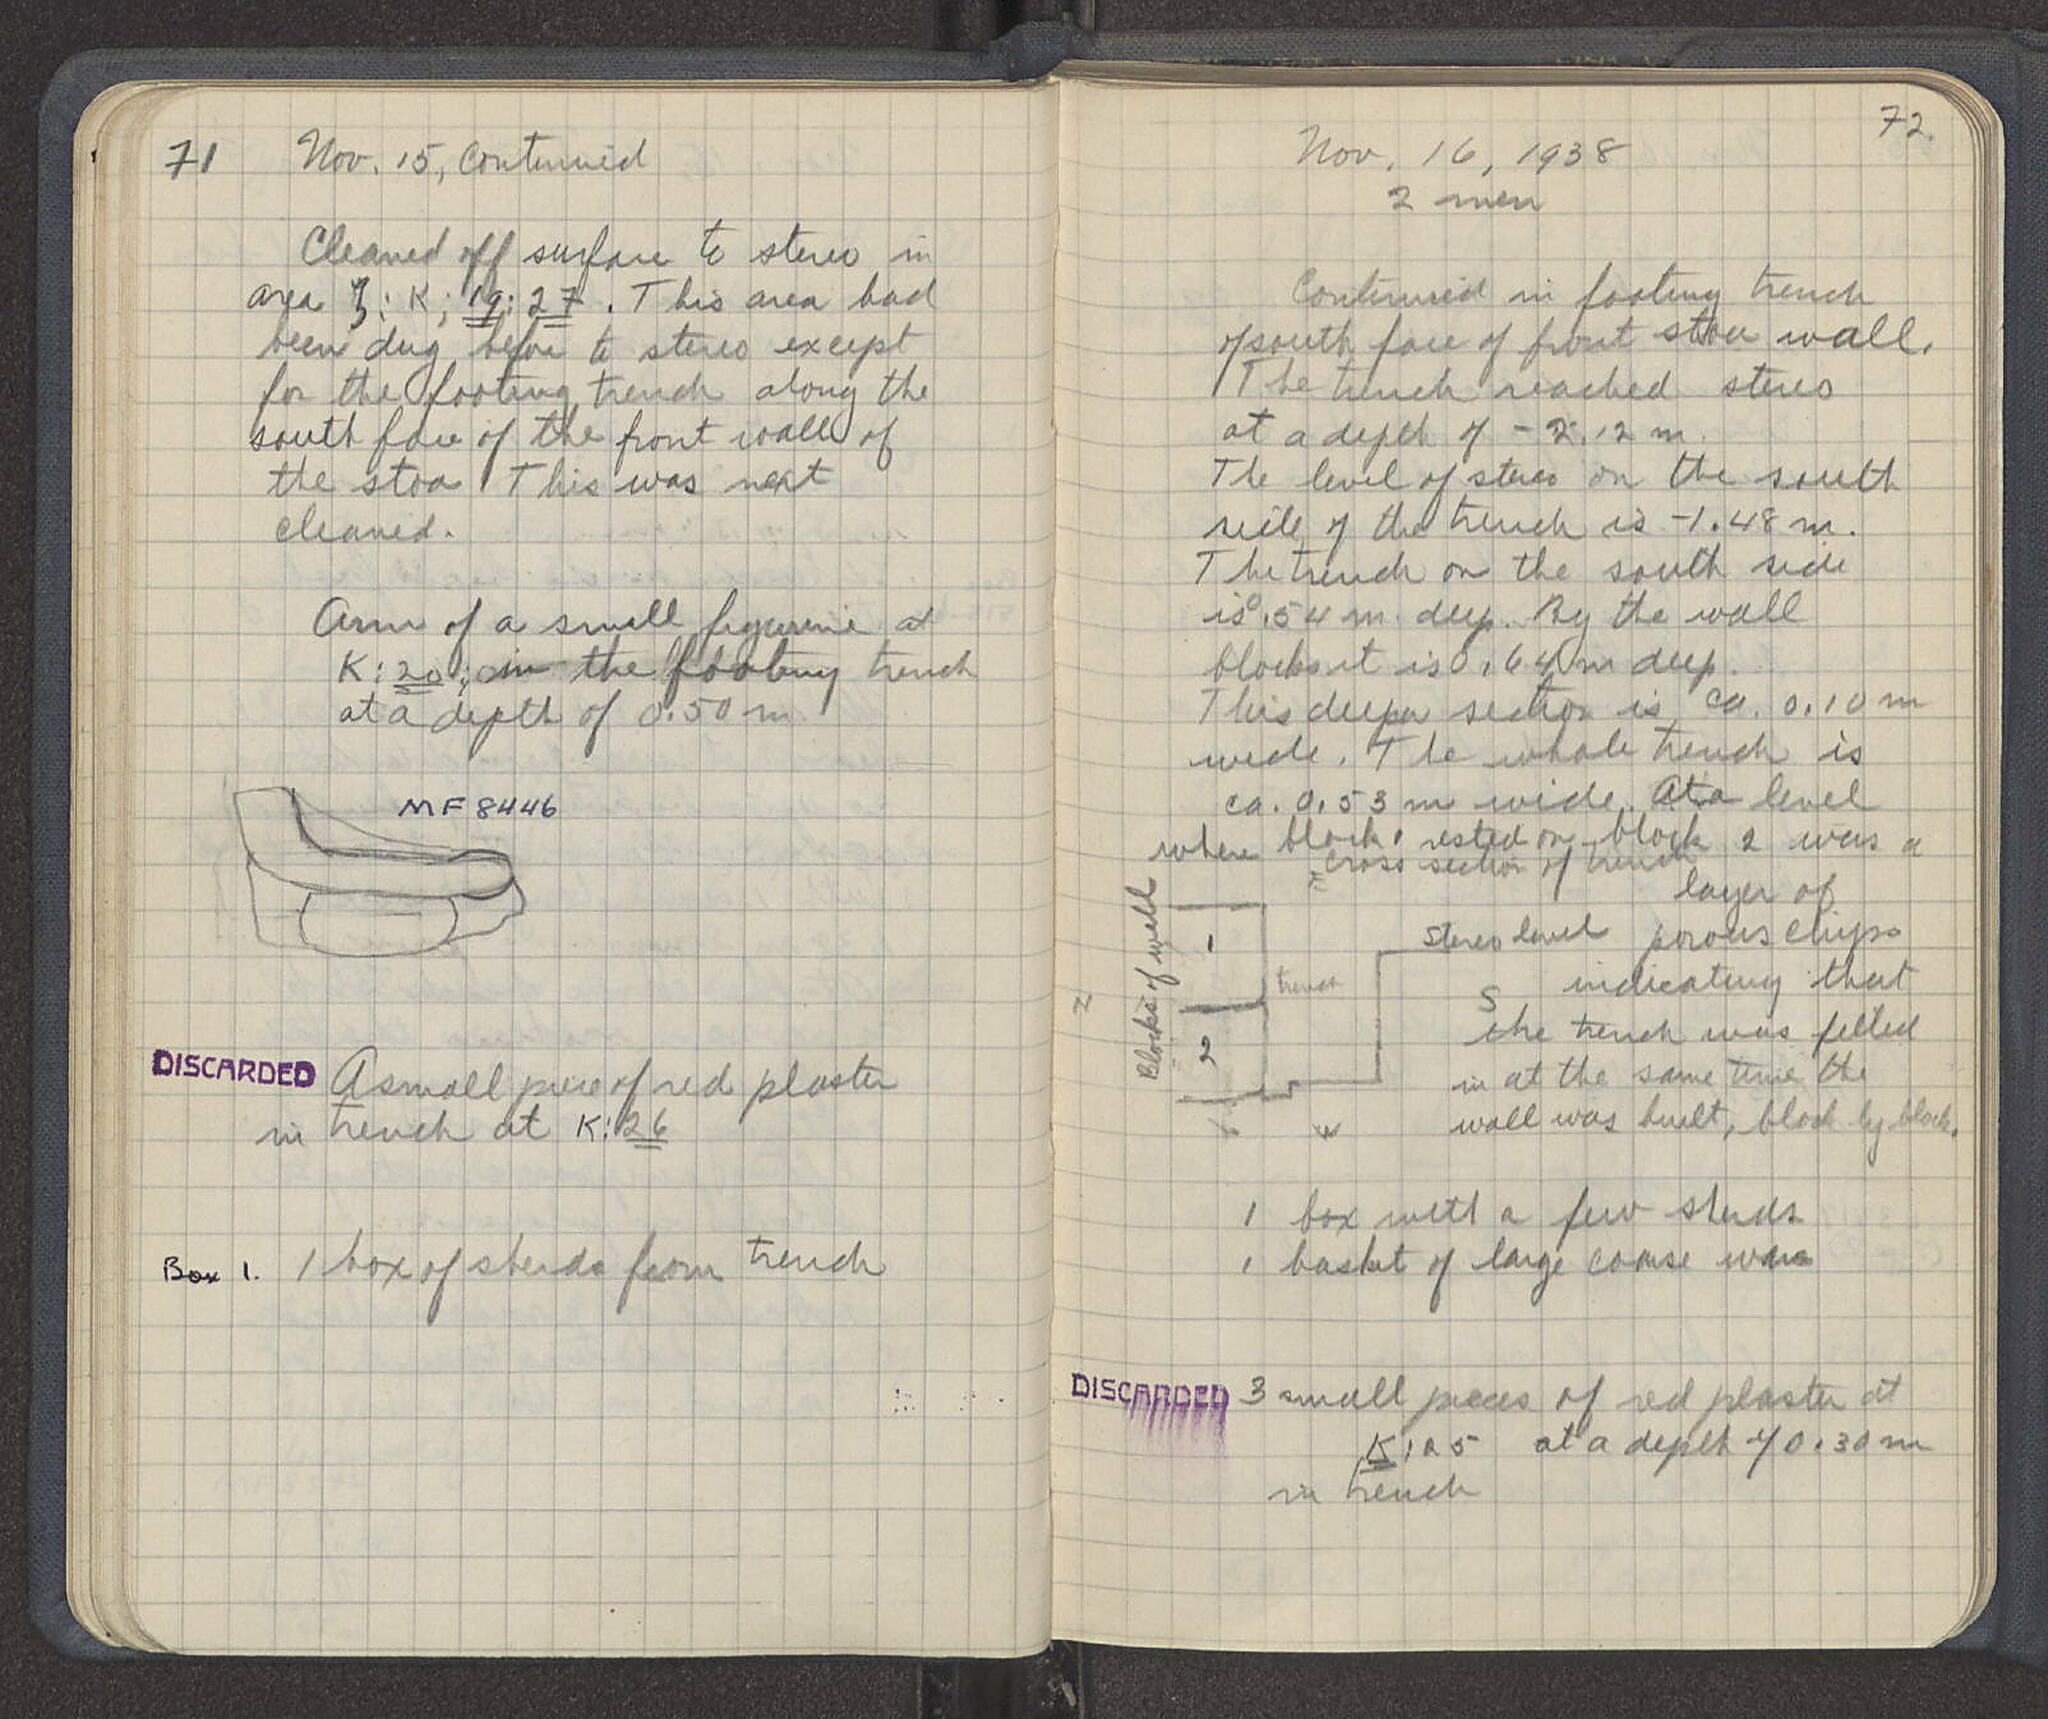 71 Nov. 15, Continued
Cleaned off surface to stereo in
area : K; 19:27. This area had
been dug before to stereo except
for the footing trench along the
south face of the front wall of
the stoa This was next
cleaned.
Arm of a small figurine at
K:20; in the footing trench
at a depth of 0.50 m
MF 8446
DISCARDED A small piece of red plaster
in trench at K:26
Box 1. 1 box of sherds from trench
72.
Nov. 16, 1938
2 men
Continued in footing trench
of south face of front stoa wall.
The trench reached stereo
at a depth of -2.12 m.
The level of stereo on the south
side of the trench is -1.48 m.
The trench on the south side
is 0.54 m. deep. By the wall
blocks it is 0.64 m deep.
This deeper section is ca. 0.10 m
wide. The whole trench is
ca. 0.53 m wide. At a level
where block 1 rested on block 2 was a
cross section of trench
layer of
Blocks of wall
1
stereo level
porous chips
trench
N
S
indicating that
2
the trench was filled
in at the same time the
wall was built, block by block.
1 box with a few sherds
1 basket of large coarse ware
DISCARDED 3 small pieces of red plaster at
K:25 at a depth of 0.30 m
in trench